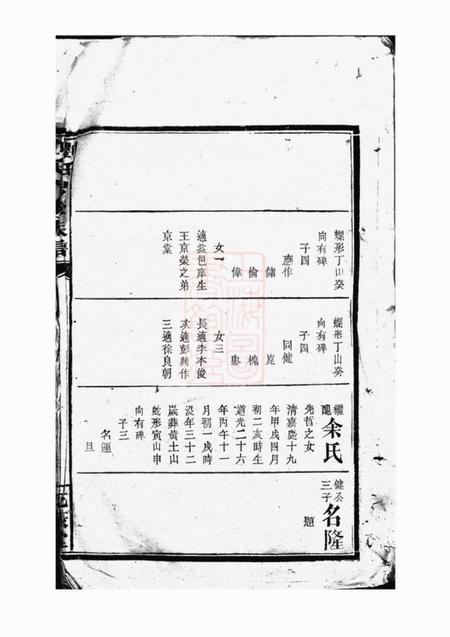 螺形丁山癸
向有碑
子四
應作
儲
倫
偉
女一
適益邑庠生
王京榮之弟
京棠
螺形丁山癸
向有碑
子四
同健
崑
槐
女三
長適李本俊
次適彭興作
三適徐良朝
繼配
余氏
先哲之女
清嘉慶十九
年甲戌四月
初二亥時生
道光二十六
年丙午十一
月初一戌時
沒年三十三
歲葬黃土山
蛇形寅山申
向有碑
子三
名運
旦
健公
三子
名隆
題